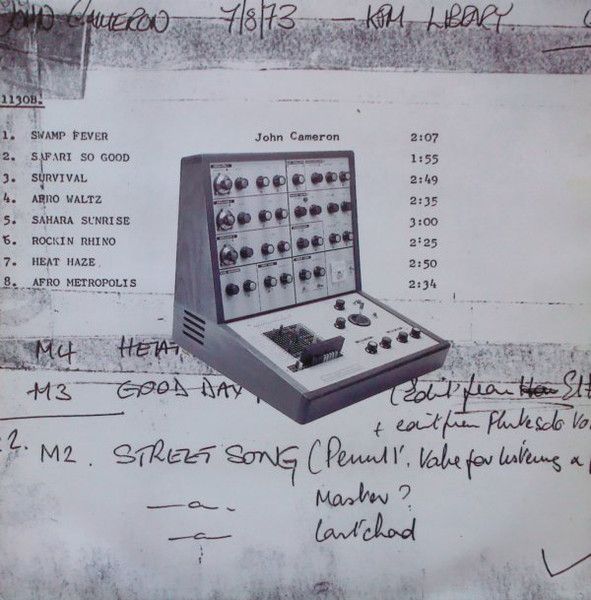 JOHN CAMERON 7/8/73 — KPM LIBRARY.
11308.
1. SWAMP FEVER John Cameron 2:07
2. SAFARI SO GOOD 1:55
3. SURVIVAL 2:49
4. AFRO WALTZ 2:35
5. SAHARA SUNRISE 3:00
6. ROCKIN RHINO 2:25
7. HEAT HAZE 2:50
8. AFRO METROPOLIS 2:34
M4 HEAT
M3 GOOD DAY (Edit from
+ edit from
2. M2. STREET SONG (
—a.— Master?
—a—